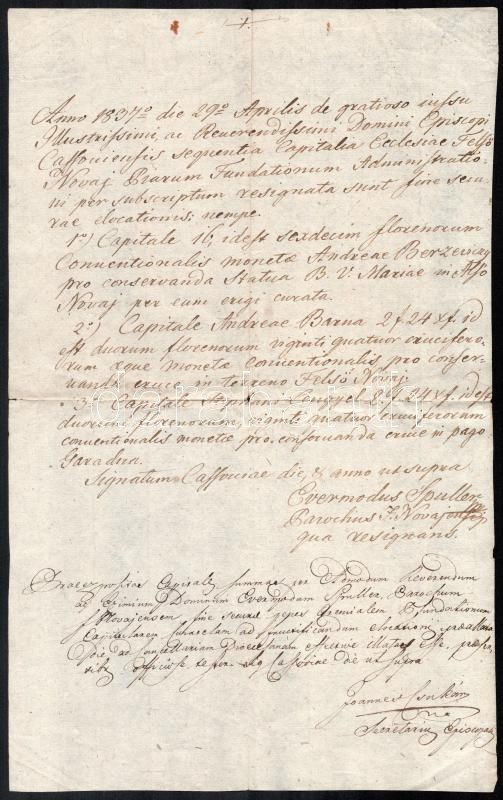 Anno 1837º die 29º Aprilis de gratioso iussu
Illustrissimi, ac Reverendissimi Domini Episcopi
Cassoviensis sequentia Capitalia Ecclesiae Felsö
Novaj Piarum Fundationum Administratio
ni per subscriptum resignata sunt fine secu
rae elocationis; nempe.
1º) Capitale 16, idest sexdecim florenorum
Conventionalis monetae Andreae Berzeviczy
pro conservanda Statua B. V. Mariae in Also
Novaj per eum erigi curata.
2º) Capitale Andreae Barna 2 f 24 xf. id
est duorum florenorum viginti quatuor crucifero
rum aque monetae conventionalis pro conser
vanda cruce in terreno Felsö Novaj.
3º) Capitale Stephani Lengyel 2 f 24 xf. idest
duorum florenorum, viginti quatuor cruciferorum
conventionalis monetae pro conservanda cruce in pago
Garadna.
Signatum Cassoviae die, & anno ut supra
Evermodus Spuller
Parochus F. Novaj
qua resignans.
Capitales summas per Admodum Reverendum
ac Eximium Dominum Evermodum Spuller, Parochum
F Novajensem fine securae Fundationum
Capitularem ad fructificandum
ad Cancellariam Dioecesanam esse,
Cassoviae die ut supra
Joannes Csukás
Secretarius Episcopalis